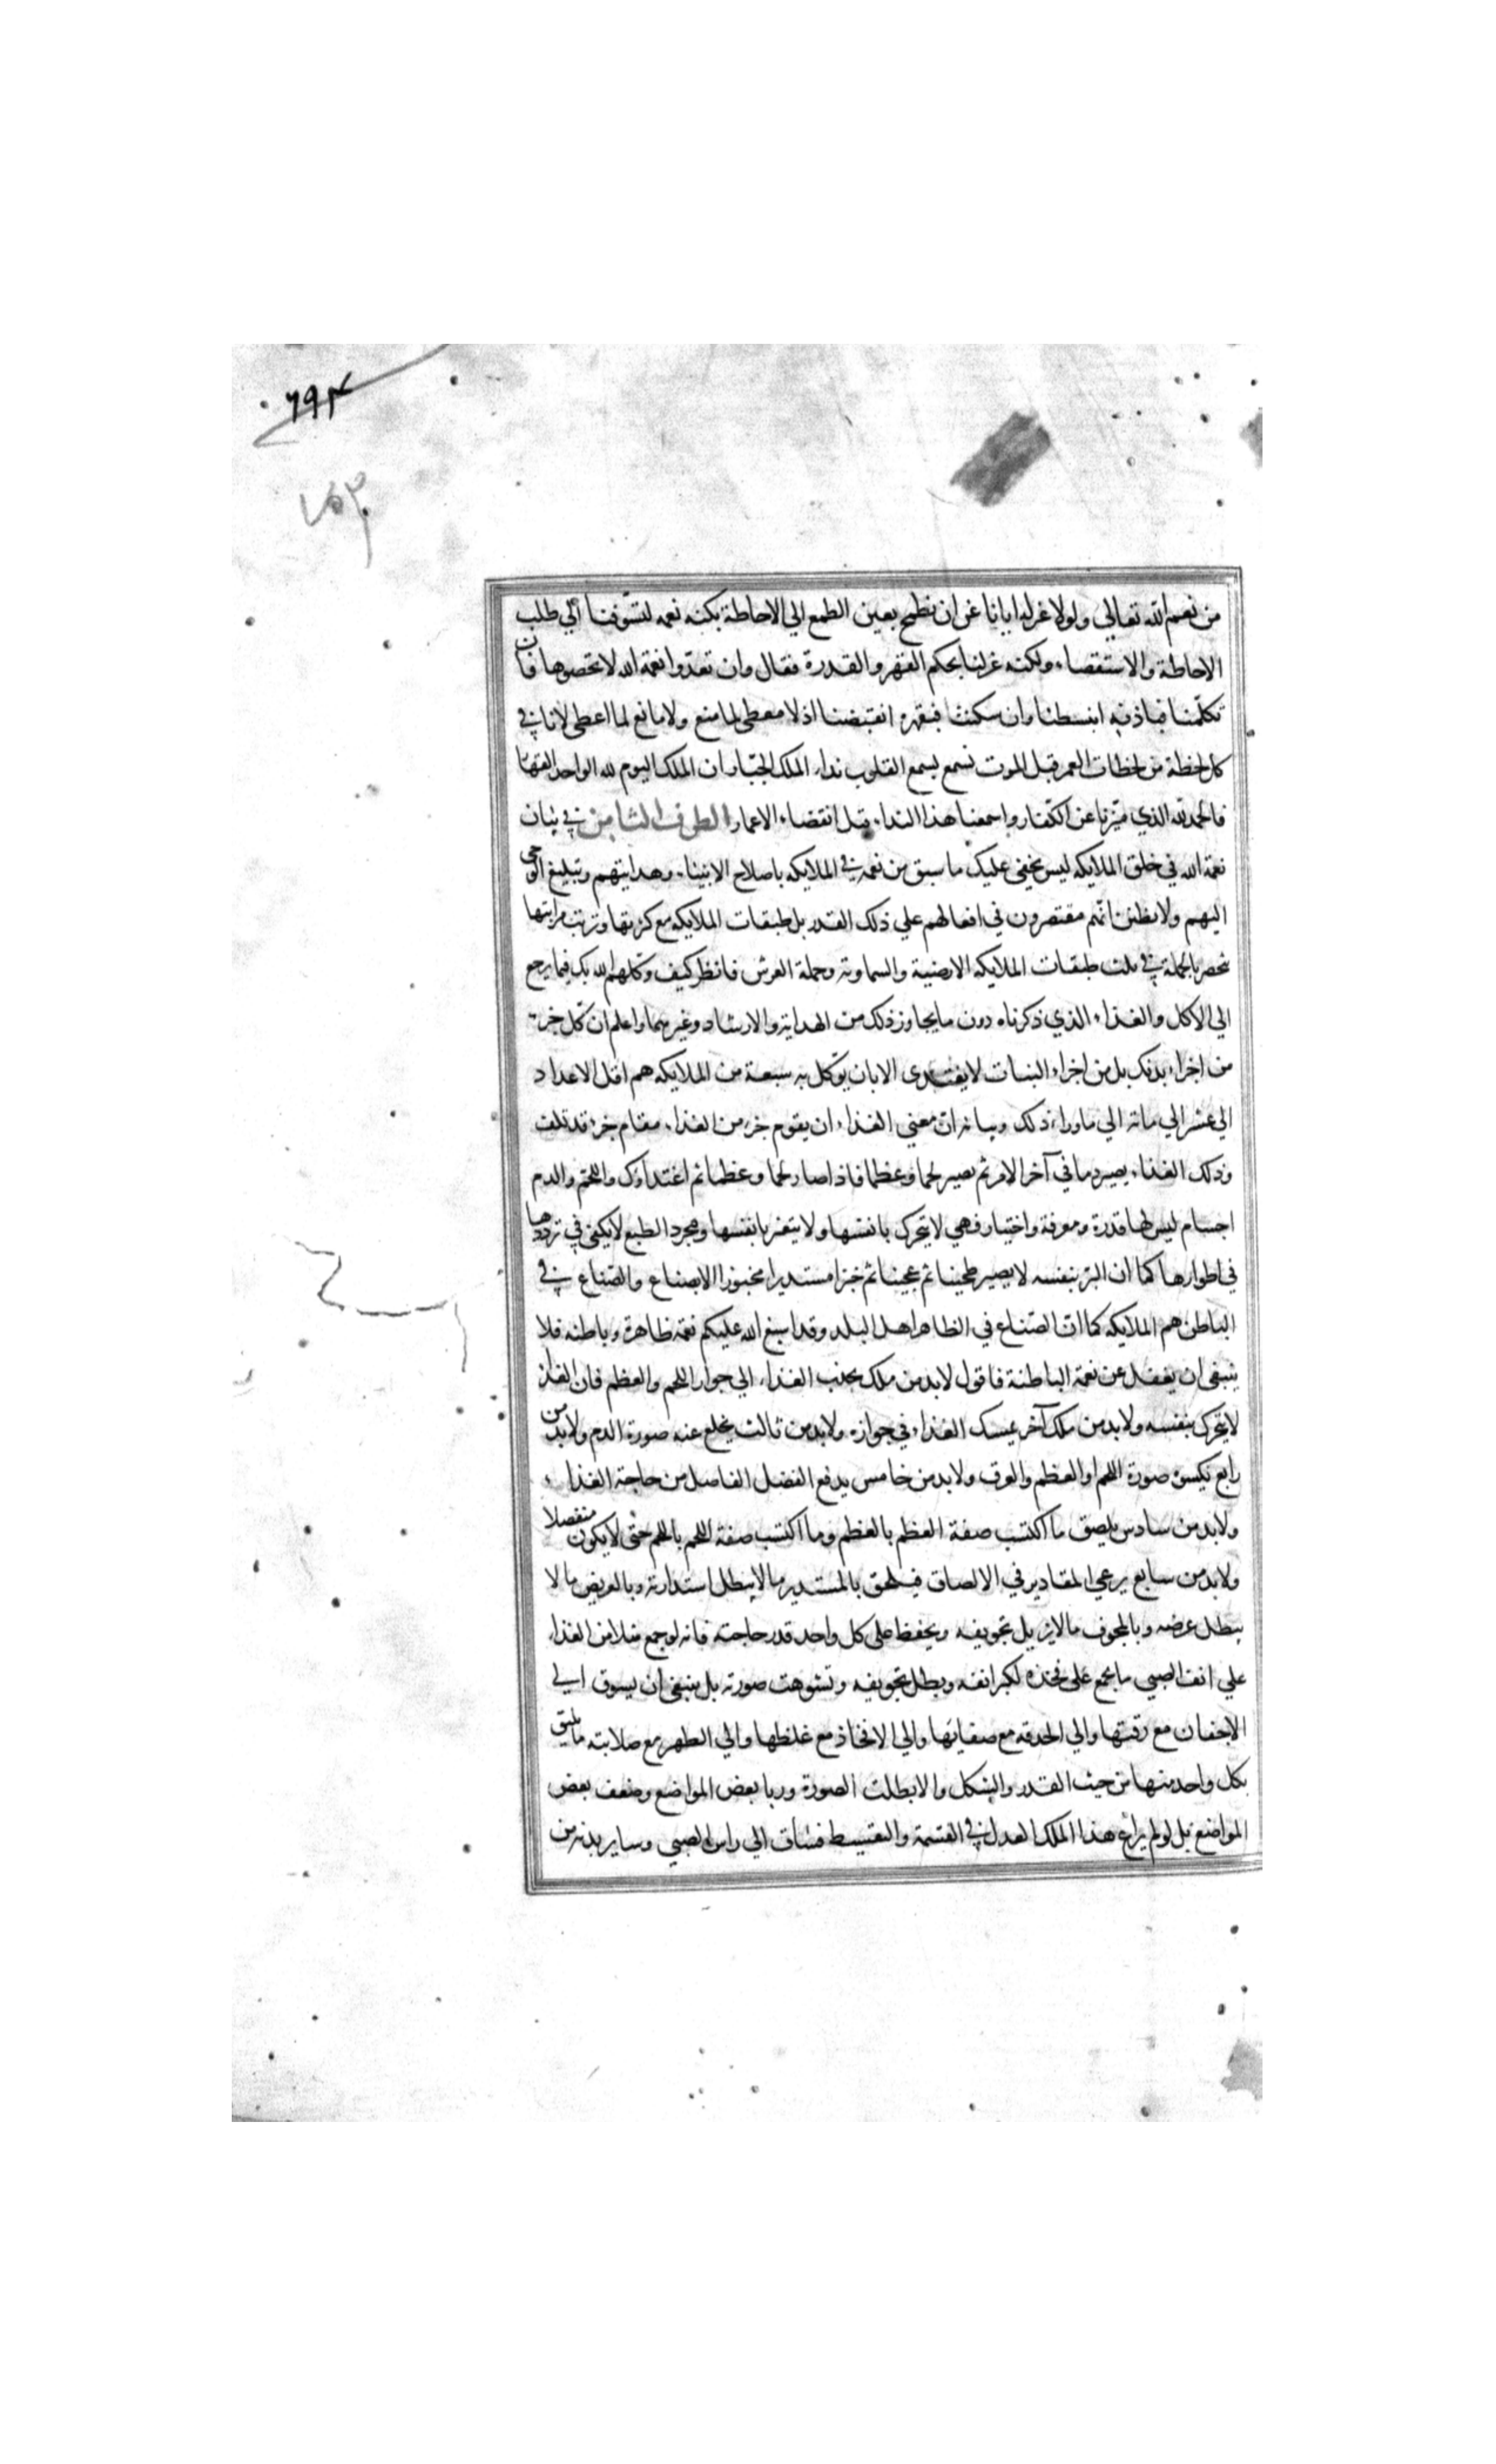 ٦٩٣
من نعم الله تعالى ولولا عزله ايانا عن ان نطمح بعين الطمع الي الاحاطة بكنه نعمه لتشوفنا الي طلب
الاحاطة والاستقصاء ولكنه عزلنا بحكم القهر والقدرة فقال وان تعدوا نعمة الله لا تحصوها فان
تكلمنا فباذنه انبسطنا وان سكتنا فبقهره انقبضنا اذ لا معطى لما منع ولا مانع لما اعطى لانا في
كل لحظة من لحظات العمر قبل الموت نسمع بسمع القلوب نداء الملك الجبار لمن الملك اليوم لله الواحد القهار
فالحمد لله الذي ميزنا عن الكفار واسمعنا هذا النداء قبل انقضاء الاعمار الطرف الثامن في بيان
نعمة الله في خلق الملايكه ليس يخفى عليك ما سبق من نعمه في الملايكه باصلاح الانبياء وهدايتهم وتبليغ الوحى
اليهم ولا يظنن انهم مقتصرون في افعالهم علي ذلك القدر بل طبقات الملايكه مع كثرتها وترتب مراتبها
ينحصر بالجملة في ثلث طبقات الملايكه الارضية والسماوية وحملة العرش فانظر كيف وكلهم الله بك فيما يرجع
الي الاكل والغذاء الذي ذكرناه دون ما يجاوز ذلك من الهداية والارشاد وغيرهما واعلم ان كل جزء
من اجزاء بدنك بل من اجزاء النبات لا يغتدى الا بان يوكل به سبعة من الملايكه هم اقل الاعداد
الي عشر الي مائة الي ما وراء ذلك وبيانه ان معني الغذاء ان يقوم جزء من الغذاء مقام جزء قد تلف
وذلك الغذاء يصير دما في آخر الامر ثم يصير لحما وعظما فاذا صار لحما وعظما تم اغتداؤك واللحم والدم
اجسام ليس لها قدرة ومعرفة واختيار فهي لا يتحرك بانفسها ولا يتغير بانفسها ومجرد الطبع لا يكفي في ترددها
في اطوارها كما ان البر بنفسه لا يصير طحينا ثم عجينا ثم خبزا مستديرا مخبوزا الا بصناع والصناع في
الباطن هم الملايكه كما ان الصناع في الظاهر اهل البلد وقد اسبغ الله عليكم نعمه ظاهرة وباطنه فلا
ينبغى ان يغفل عن نعمة الباطنة فاقول لابد من ملك يجذب الغذاء الي جوار اللحم والعظم فان الغذاء
لا يتحرك بنفسه ولابد من ملك آخر يمسك الغذاء في جواره ولابد من ثالث يخلع عنه صورة الدم ولابد من
رابع يكسوه صورة اللحم او العظم والعرق ولابد من خامس يدفع الفضل الفاصل من حاجة الغذاء
ولابد من سادس يلصق ما اكتسب صفة العظم بالعظم وما اكتسب صفة اللحم باللحم حتى لا يكون منفصلا
ولابد من سابع يرعي المقادير في الالصاق فيلحق بالمستدير ما لا يبطل استدارته وبالعريض ما لا
يبطل عرضه وبالمجوف ما لا يزيل تجويفه ويحفظ على كل واحد قدر حاجته فانه لو جمع مثلا من الغذاء
علي انف الصبي ما يجمع على فخذه لكبر انفه وبطل تجويفه وتشوهت صورته بل ينبغي ان يسوق الي
الاجفان مع رقتها والي الحدقه مع صفيائها والي الافخاذ مع غلظها والي الظهر مع صلابته ما يليق
بكل واحد منها من حيث القدر والشكل والا بطلت الصورة وربا بعض المواضع وضعف بعض
المواضع بل لو لم يراع هذا الملك العدل في القسمة والتقسيط فساق الي راس الصبي وساير بدنه من